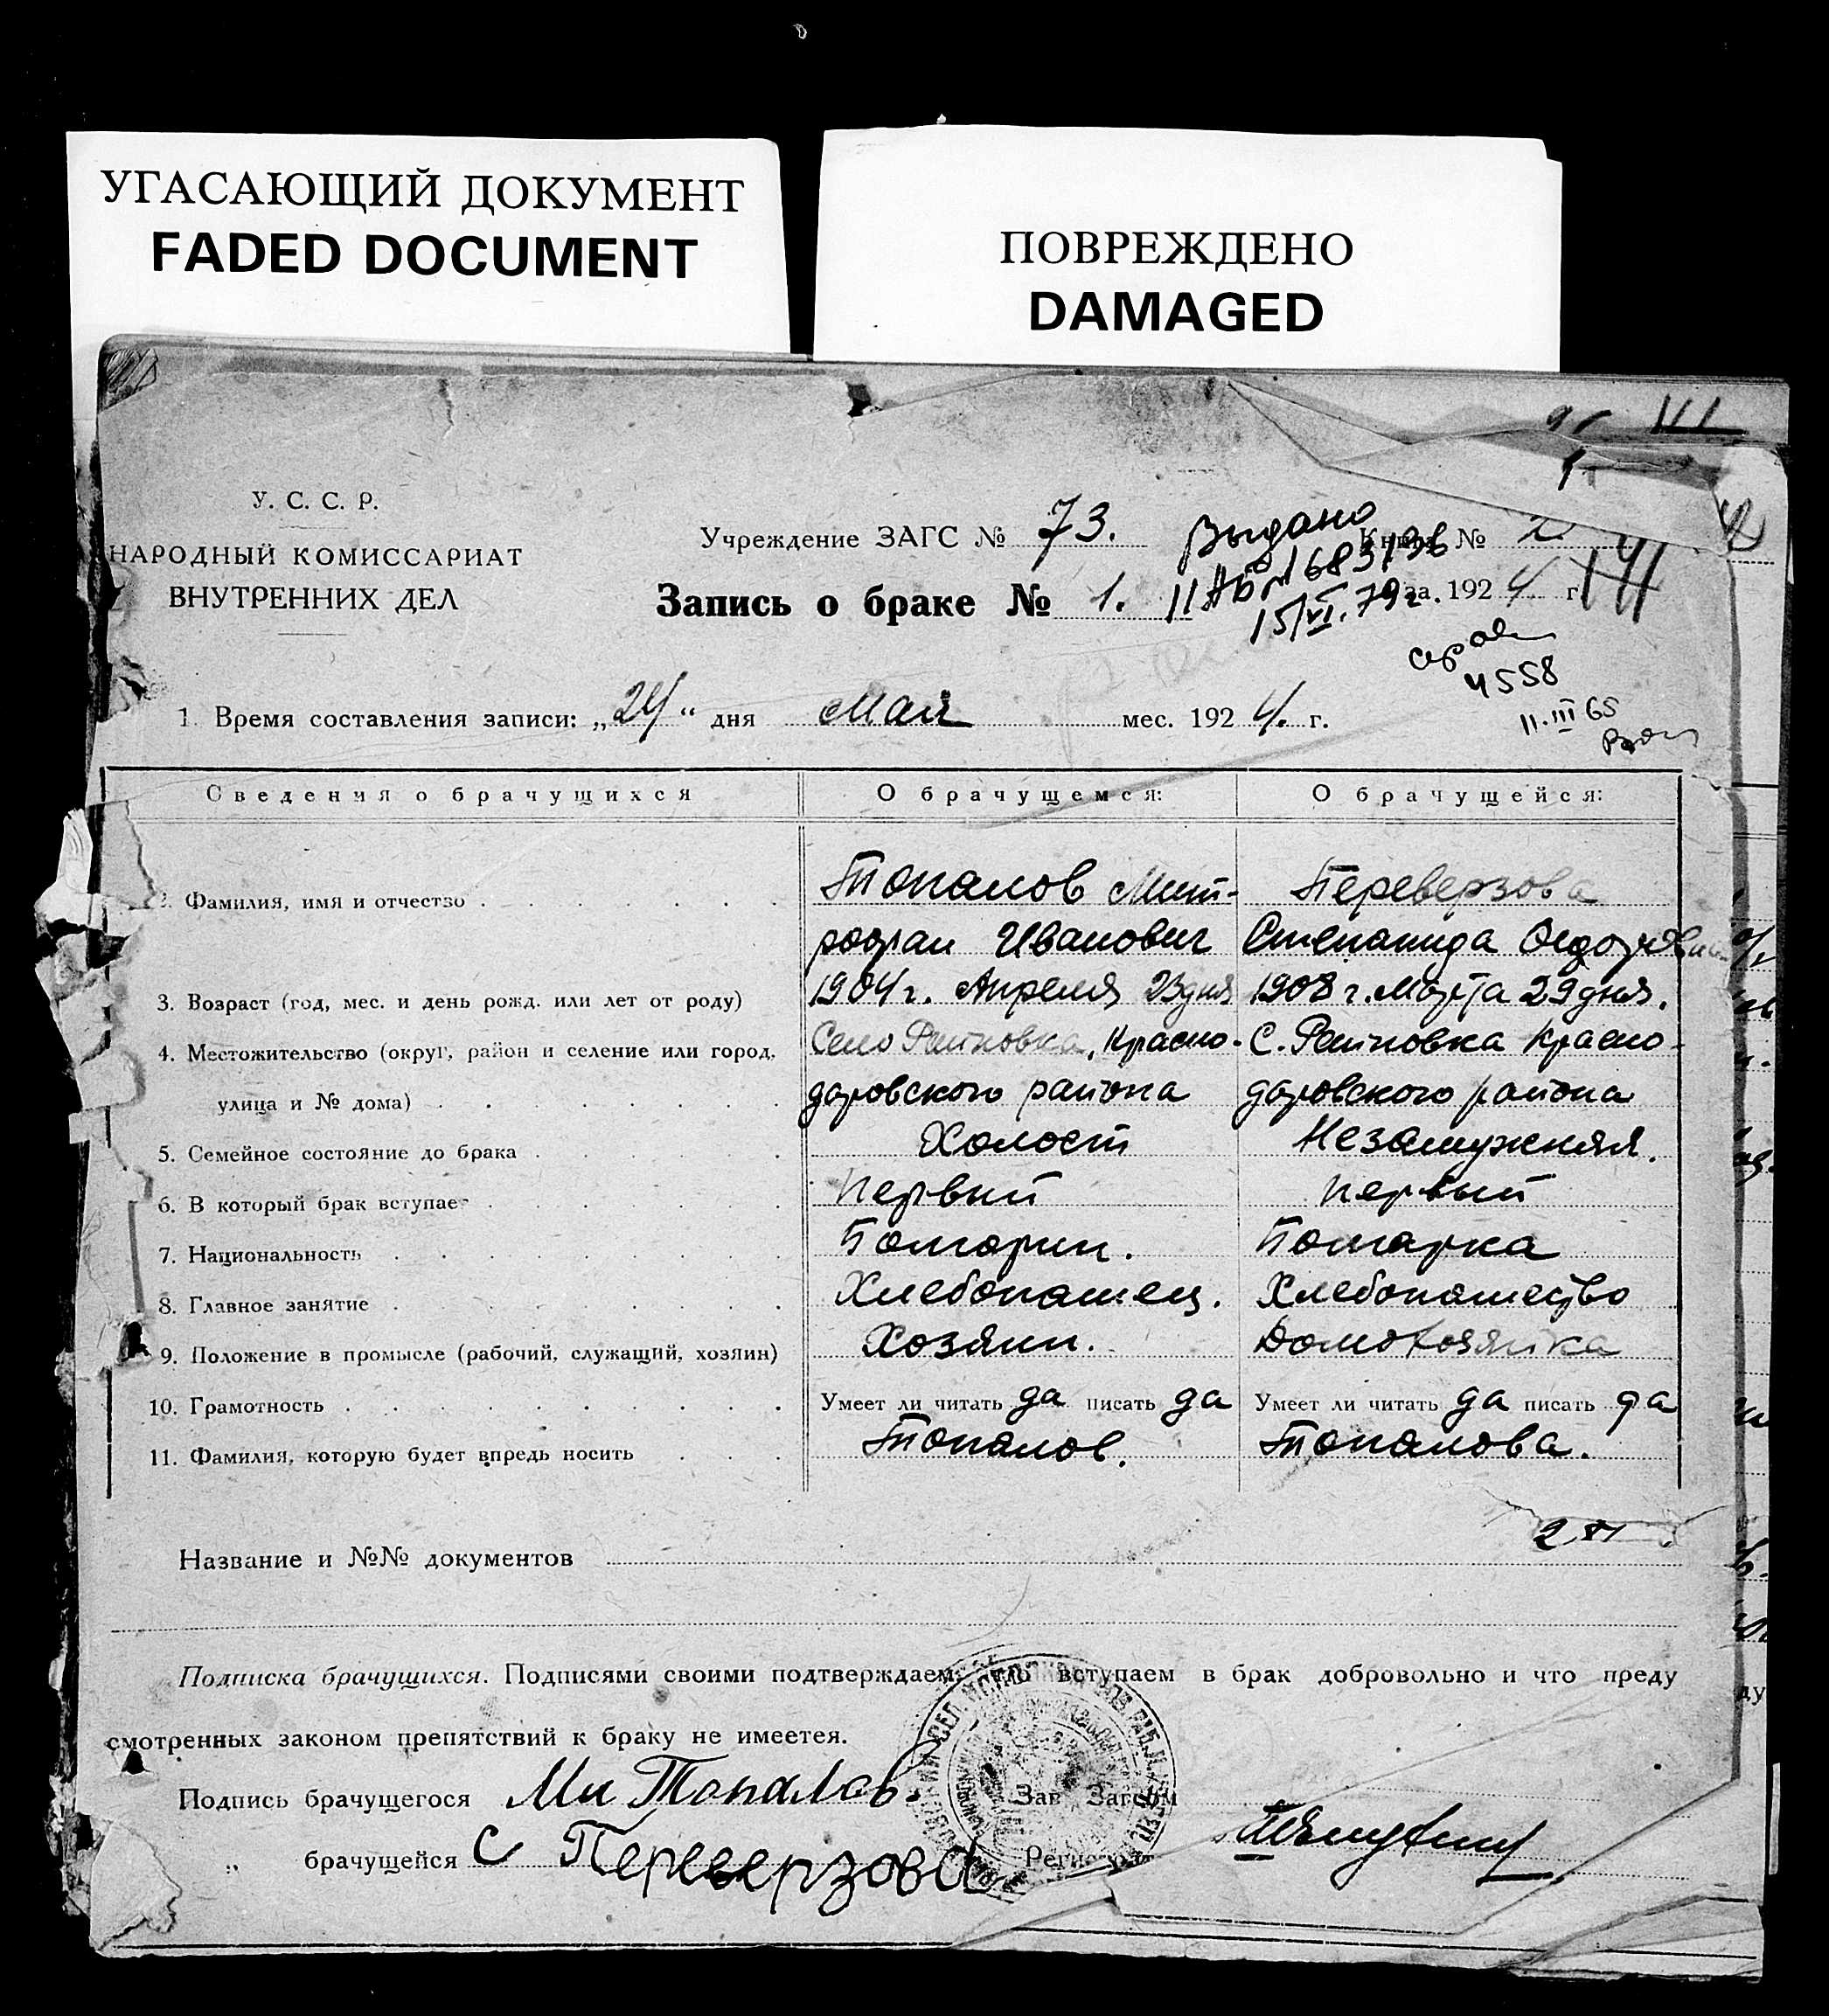 УГАСАЮЩИЙ ДОКУМЕНТ
FADED DOCUMENT
ПОВРЕЖДЕНО
DAMAGED
У. С. С. Р.
НАРОДНЫЙ КОМИССАРИАТ
ВНУТРЕННИХ ДЕЛ
Учреждение ЗАГС № 73. Книга № 2.
Выдано
Запись о браке № 1. за 1924 г.
15/VI. 79 г.
4558
11.III 65
1. Время составления записи: „24“ дня Мая мес. 1924. г.
Сведения о брачущихся О брачущемся: О брачущейся:
2. Фамилия, имя и отчество Топалов Мит- Переверзова
рофан Иванович Степанида
3. Возраст (год, мес. и день рожд. или лет от роду) 1904 г. Апреля 23 дня 1908 г. Марта 29 дня.
4. Местожительство (округ, район и селение или город, Село Райновка, Красно- С. Райновка Красно-
улица и № дома) даровского района даровского района
5. Семейное состояние до брака Холост Незамужняя.
6. В который брак вступает Первый Первый
7. Национальность Болгарин. Болгарка
8. Главное занятие Хлебопашец. Хлебопашество
9. Положение в промысле (рабочий, служащий, хозяин) Хозяин. Домохозяйка
10. Грамотность Умеет ли читать да писать да Умеет ли читать да писать да
11. Фамилия, которую будет впредь носить Топалов. Топалова.
Название и №№ документов
Подписка брачущихся. Подписями своими подтверждаем, что вступаем в брак добровольно и что преду
смотренных законом препятствий к браку не имеетея.
Подпись брачущегося Ми Топалов. Зав Загсом
„ брачущейся С Переверзова Регистрат